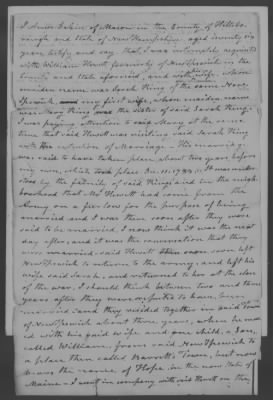 I of Mason in the County of Hillsbo
rough and State of New Hampshire aged seventy six
years testify and say that I was intimately acquainted
with William Hewitt formerly of New Ipswich in the
County and State aforesaid, and with his wife, whose
maiden name was Sarah Thing of the same New
Ipswich, my first wife, whose maiden name
was Mary Thing was the sister of said Sarah Thing.
I was paying attention to said Mary at the same
time that said Hewitt was visiting said Sarah Thing
with the intention of Marriage. This marriage
was said to have taken place about two years before
my own, which took place Dec. 11. 1783. It was under
stood by the family of said Things and in the neigh
bourhood that Mr Hewitt had come from the
Army on a furlow for the purpose of being
married and I was there soon after they were
said to be married. I now think it was the next
day after, and it was the conversation that they
was married said Hewitt soon left
New Ipswich to return to the army, and left his
wife said Sarah, and returned to her at the close
of the war, I should think between two and three
years after they were reputed to have been
married and they resided together in said Town
of New Ipswich about three years, where he mov
ed with his said wife and one child, a son,
called William, from said New Ipswich to
a place then called Barrett's Town, but now
bears the name of Hope, in the now State of
Maine - I went in company with said Hewitt on the